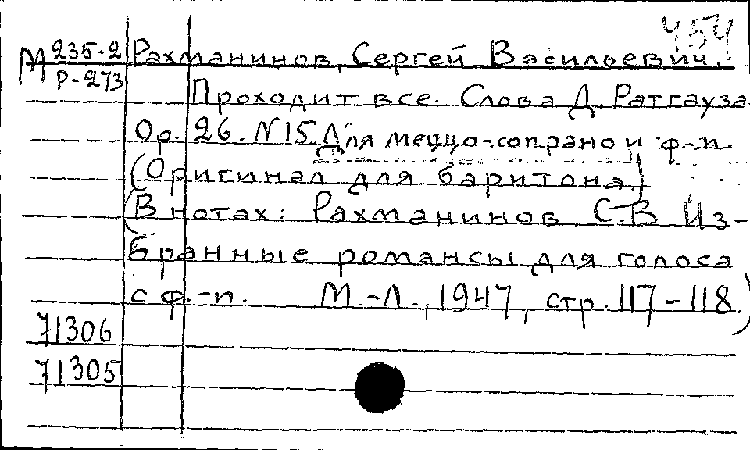 454
М 235-2 Рахманинов, Сергей Васильевич.
Р-273
Проходит все. Слова Д. Ратгауза
Ор. 26. N 15 Для меццо-сопрано и ф-п.
(Оригинал для баритона)
(В нотах: Рахманинов С.В. Из-
бранные романсы для голоса
с ф.-п. М.-Л., 1947, стр. 117-118.)
71306
71305